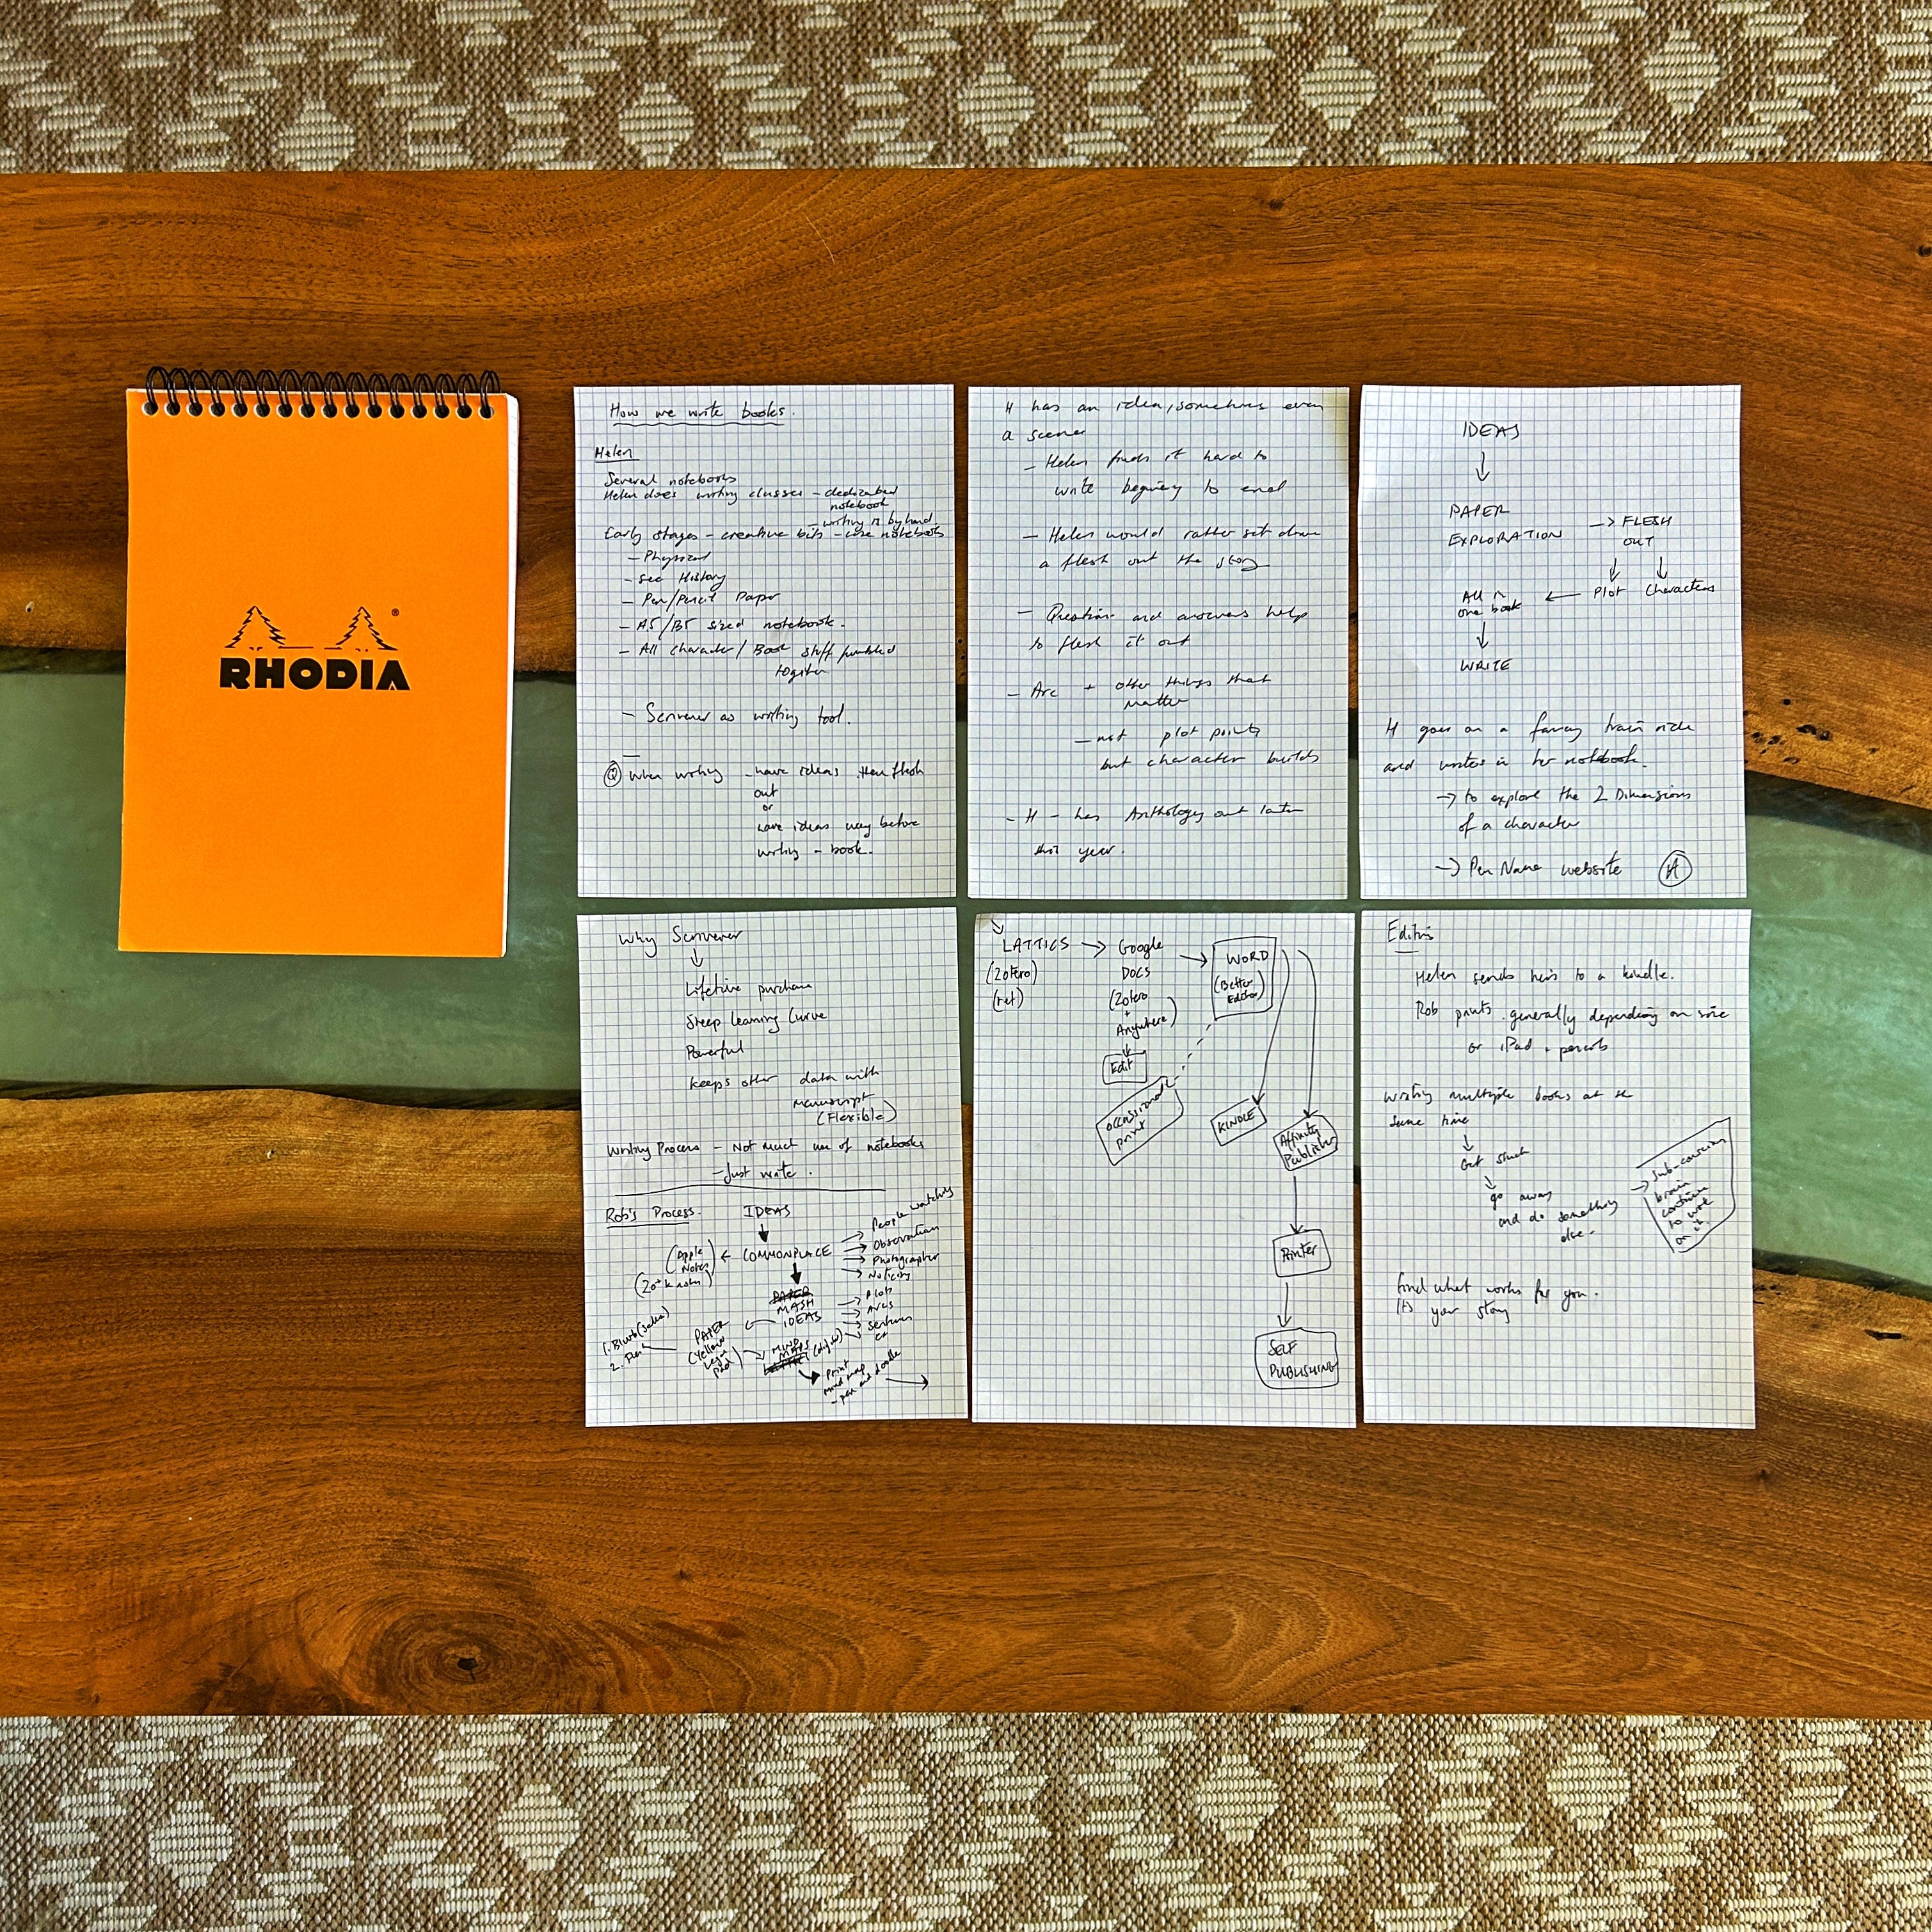 RHODIA
®
How we write books.
Helen
Several notebooks
Helen does writing classes - dedicated
notebook
- writing is by hand
Early stages - creative bits - use notebooks
- Physical
- See History
- Pen/Pencil Paper
- A5/B5 sized notebook.
- All character/Book stuff jumbled
together
- Scrivener as writing tool.
Q When writing - have ideas then flesh
out
or
have ideas way before
writing - book.
H has an idea, sometimes even
a scene
- Helen finds it hard to
write to end
- Helen would rather set down
a flesh out the story
- Question and answers help
to flesh it out
- Arc + other things that
matter
- not plot points
but character builds
- H - has Anthology out later
this year.
IDEAS
PAPER
EXPLORATION → FLESH
OUT
All in
one book ← Plot Characters
WRITE
H goes on a fancy train ride
and writes in her notebook.
→ to explore the 2 Dimensions
of a character
→ Pen Name website A
Why Scrivener
Lifetime purchase
Steep Learning Curve
Powerful
Keeps other data with
manuscript
(Flexible)
Writing Process - Not much use of notebooks
- Just write.
Rob's Process. IDEAS
(Apple
Notes)
(20+k notes)
← COMMONPLACE
→ People watching
→ Observation
→ Photographer
→ Noticing
MASH
IDEAS
→ Plots
→ Arcs
PAPER
(Yellow
Legal
Pad)
1. Blurb (sales)
2.
MIND
MAPS
(digital)
Print
mind map
- pen and doodle
LATTICS → Google
DOCS
(Zotero)
(ref)
(Zotero
+
Anywhere)
Edit
WORD
(Better
Editor)
occassional
print
KINDLE
Affinity
Publisher
Printer
SELF
PUBLISHING
Editing
Helen sends hers to a kindle.
Rob prints. generally depending on size
or iPad + pencils
Writing multiple books at the
same time
Get stuck
go away
and do something
else.
→ Sub-conscious
brain
continues
to work
on it.
Find what works for you.
Its your story